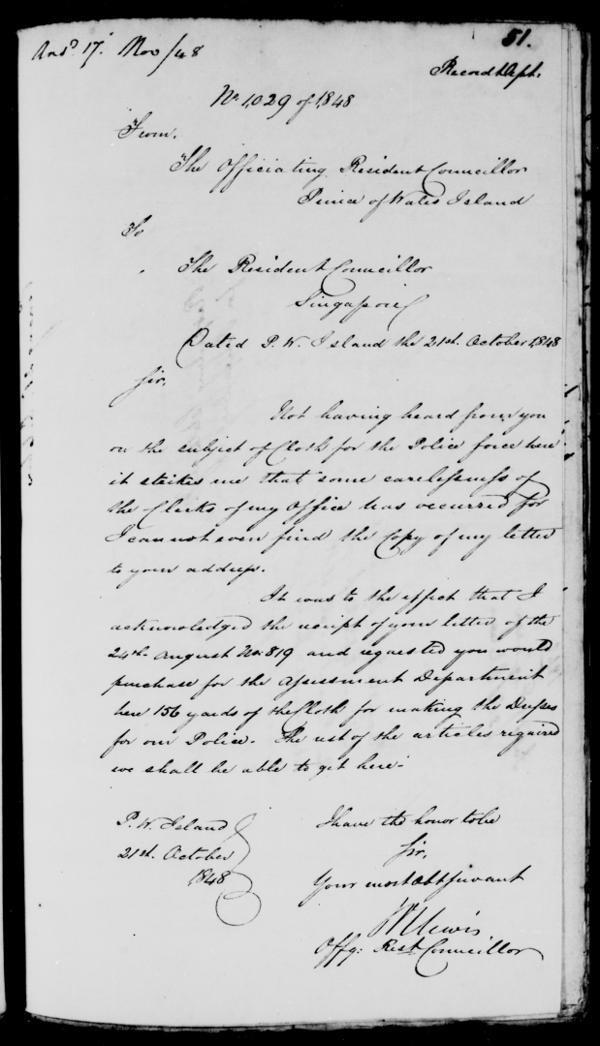 Ansd. 17. Nov/48
51.
Record Dept.
No. 1029 of 1848
From,
The Officiating Resident Councillor
Prince of Wales Island
To
The Resident Councillor
Singapore
Dated P. W. Island the 21st. October 1848
Sir,
Not having heard from you
on the subject of Cloth for the Police force here
it strikes me that some carelessness of
the Clerks of my Office has occurred for
I cannot even find the Copy of my letter
to your address.
It was to the effect that I
acknowledged the receipt of your letter of the
24th. August No. 819 and requested you would
purchase for the Assessment Department
here 156 yards of the Cloth for making the Dresses
for our Police. The rest of the articles required
we shall be able to get here.
P. W. Island
21st. October
1848
I have the honor to be
Sir,
Your most Obt. Servant
Lewis
Offg: Rest. Councillor